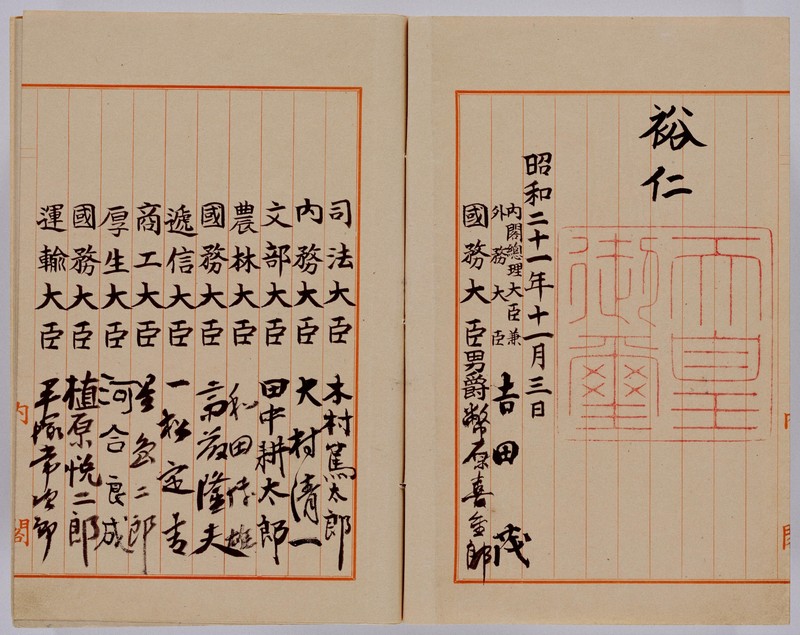 裕仁
天皇
御璽
昭和二十一年十一月三日
内閣總理大臣兼
外務大臣
吉田茂
國務大臣 男爵 幣原喜重郎
司法大臣 木村篤太郎
内務大臣 大村清一
文部大臣 田中耕太郎
農林大臣 和田博雄
國務大臣 斎藤隆夫
遞信大臣 一松定吉
商工大臣 星島二郎
厚生大臣 河合良成
國務大臣 植原悦二郎
運輸大臣 平塚常次郎
内閣